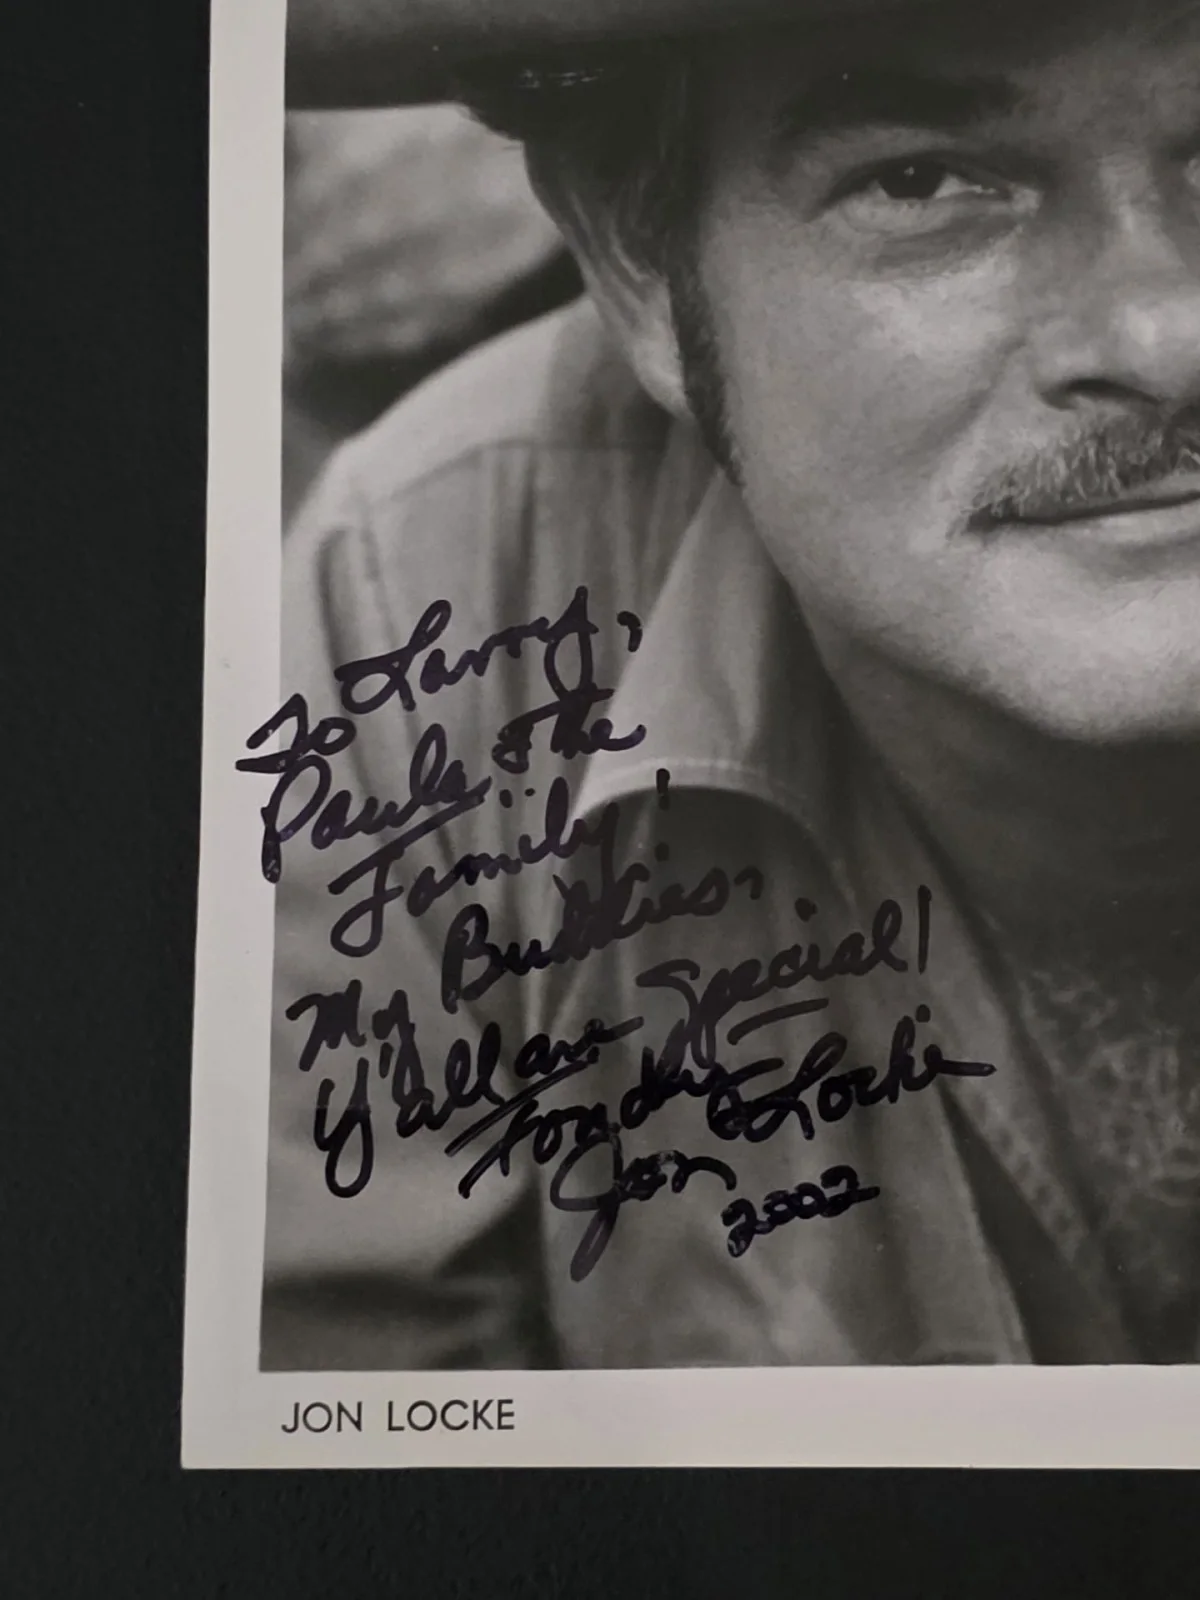 To Larry,
Paula & the
Family!
My Buddies,
Y'all are Special!
Fondly
Jon Locke
2002
JON LOCKE